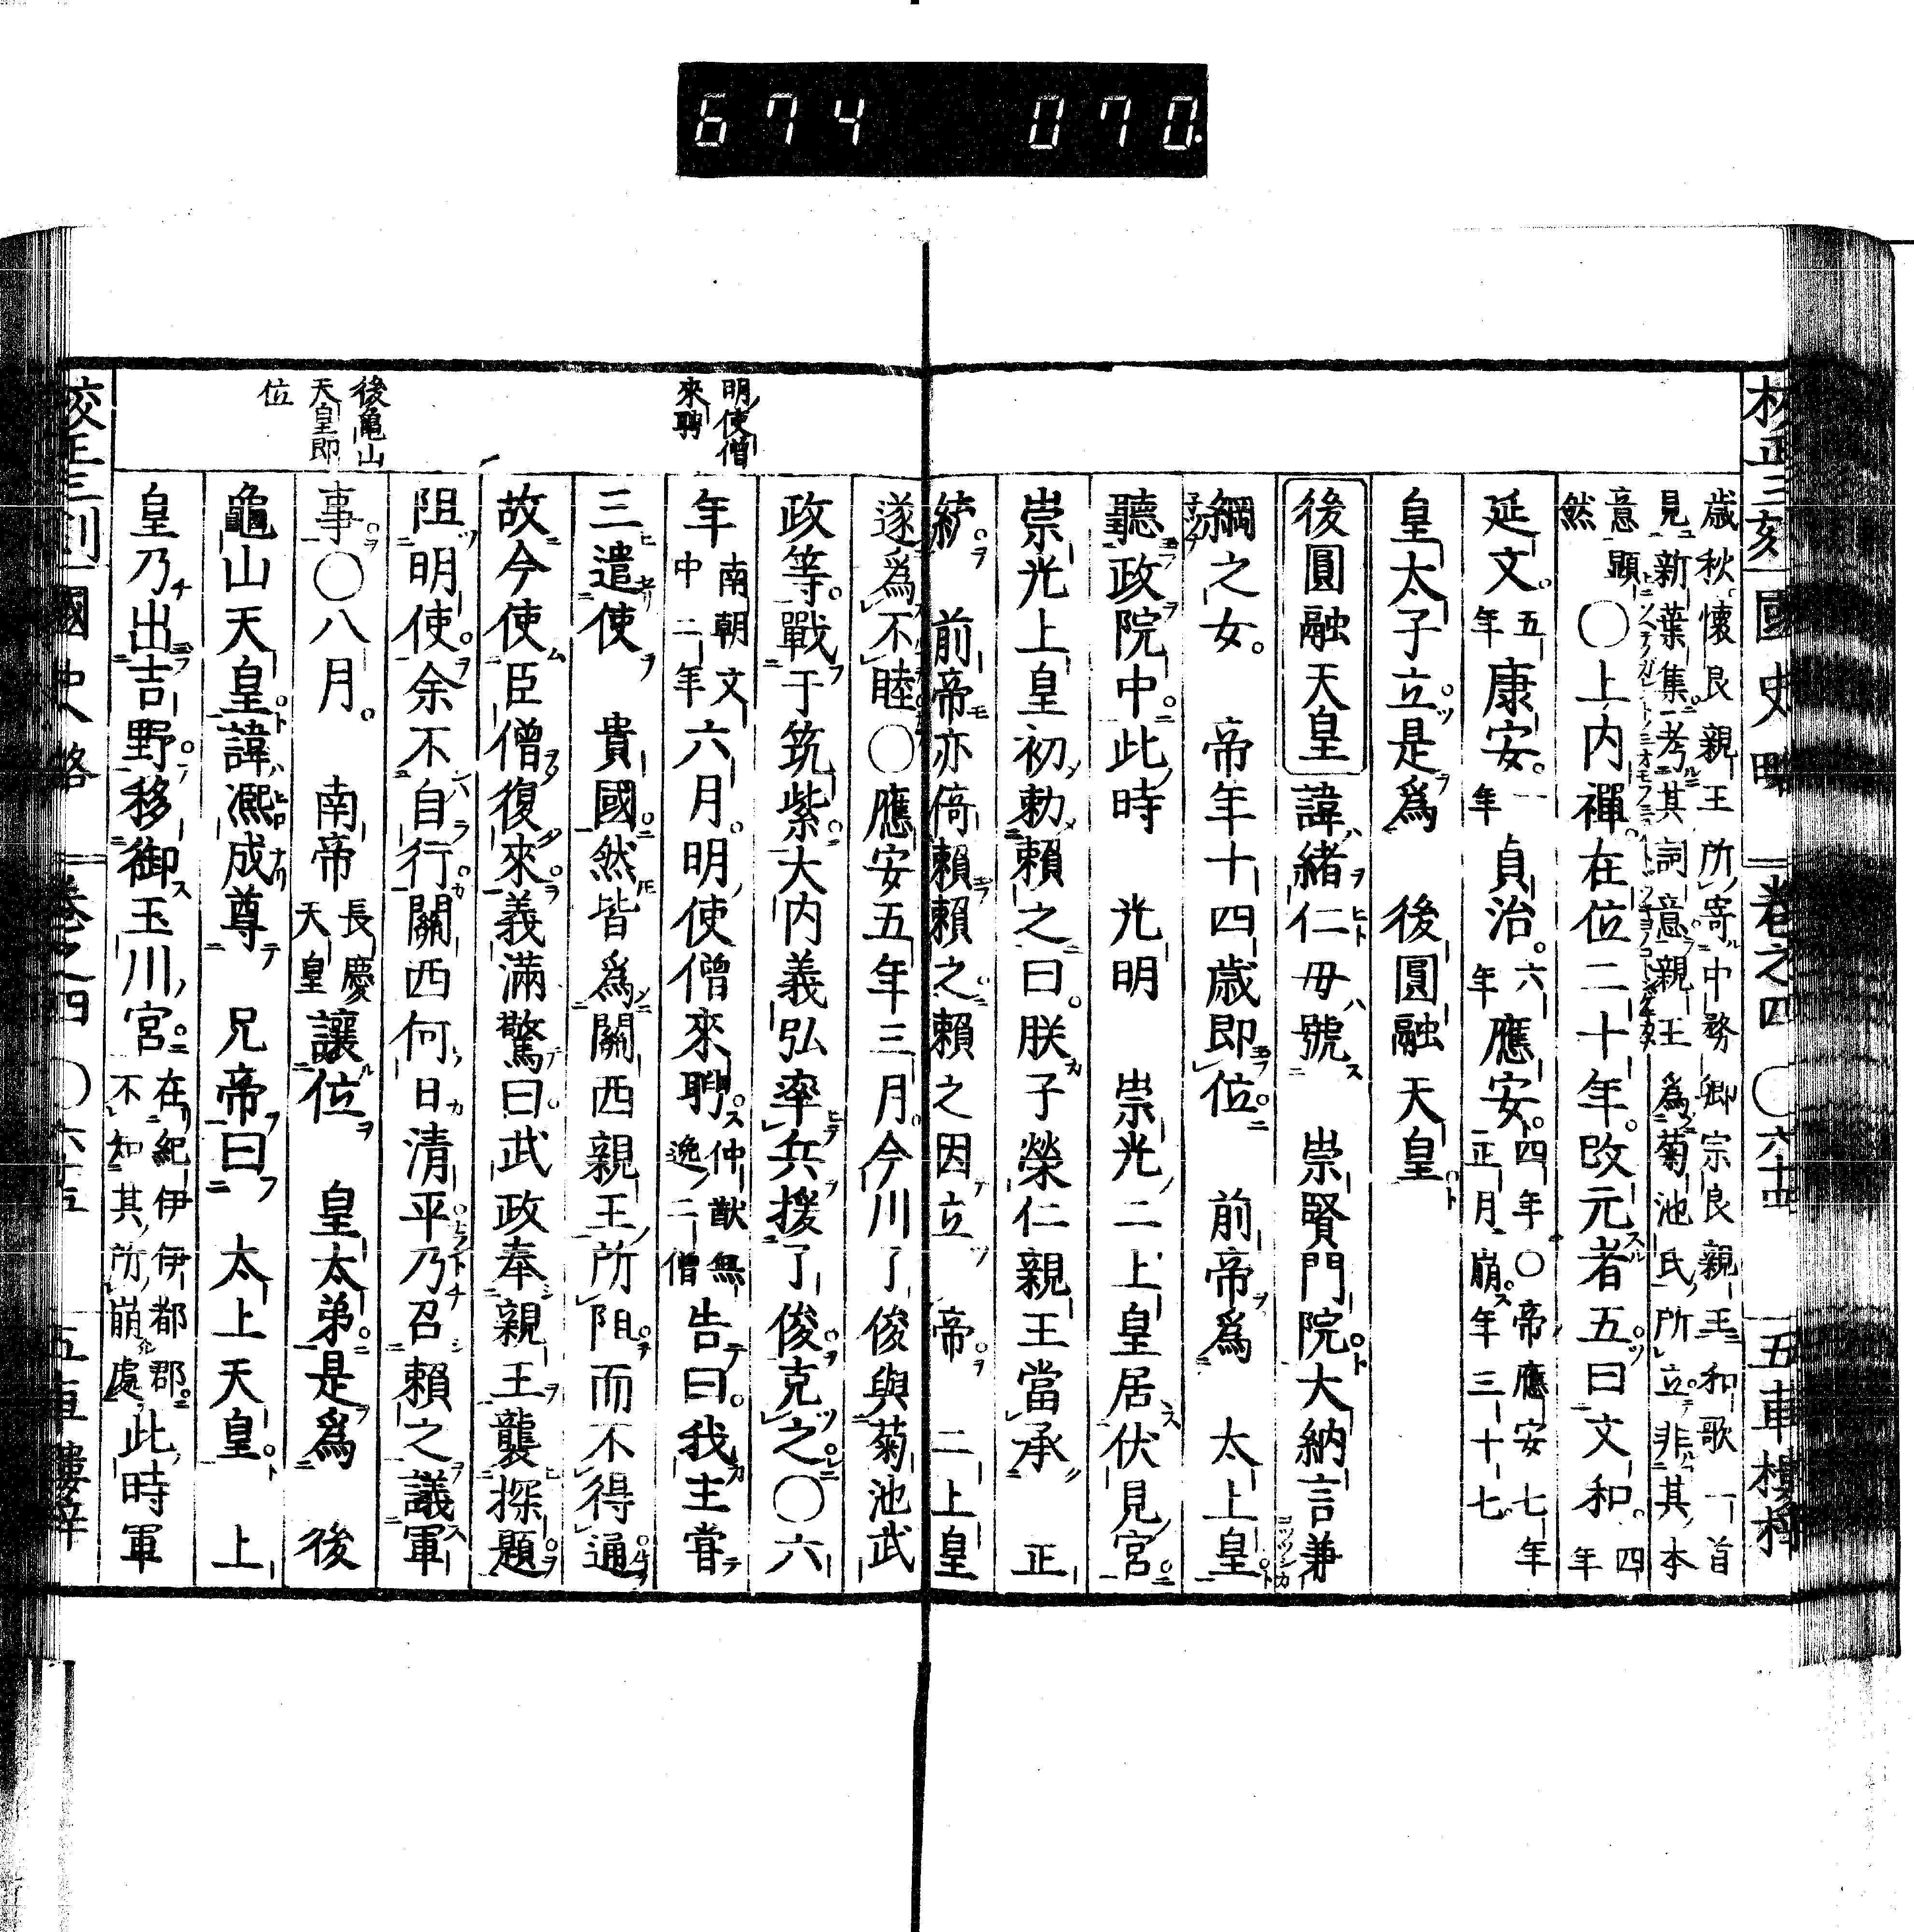 674 070
校正三刻國史略 卷之四 〇六十四 五車樓梓
歲秋懷良親王所寄中務卿宗良親王和歌一首
見新葉集考其詞意親王爲菊池氏所立非其本
意顯然〇上內禪在位二十年改元者五曰文和四年
延文五年康安一年貞治六年應安四年〇帝應安七年正月崩年三十七
皇太子立是爲 後圓融天皇
後圓融天皇諱緒仁母號 崇賢門院大納言兼
綱之女 帝年十四歲即位 前帝爲 太上皇
聽政院中此時 光明 崇光二上皇居伏見宮
崇光上皇初勅賴之曰朕子榮仁親王當承 正
統 前帝亦倚賴賴之賴之因立 帝 二上皇
遂爲不睦〇應安五年三月今川了俊與菊池武
政等戰于筑紫大內義弘率兵援了俊克之〇六
明使僧來聘
年南朝文中二年六月明使僧來聘仲猷無逸二僧告曰我主嘗
三遣使 貴國然皆爲關西親王所阻而不得通
故今使臣僧復來義滿驚曰武政奉親王襲探題
阻明使余不自行關西何日清平乃召賴之議軍
後龜山天皇即位
事〇八月 南帝長慶天皇讓位 皇太弟是爲 後
龜山天皇諱凞成尊 兄帝曰 太上天皇 上
皇乃出吉野移御玉川宮在紀伊伊都郡不知其所崩處此時軍
校正三刻國史略 卷之四 〇六十五 五車樓梓